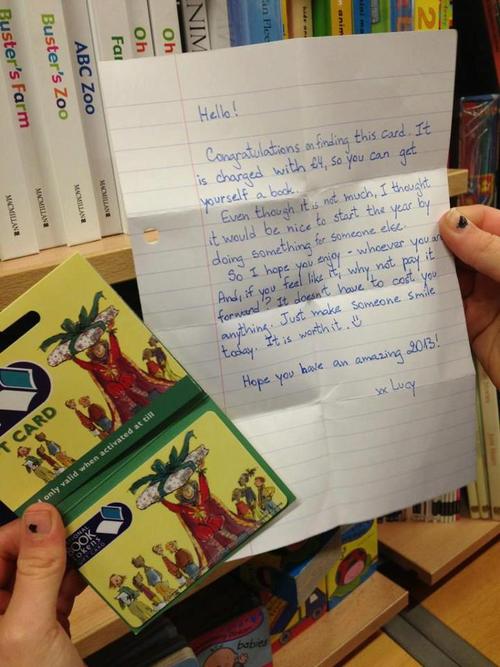 Buster's Farm
MACMILLAN
Buster's Zoo
MACMILLAN
ABC Zoo
MACMILLAN
Far
Oh
Oh
2
Hello!
Congratulations on finding this card. It
is charged with £4, so you can get
yourself a book.
Even though it is not much, I thought
it would be nice to start the year by
doing something for someone else.
So I hope you enjoy - whoever you are
And, if you feel like it, why not pay it
forward? It doesn't have to cost you
anything. Just make someone smile
today. It is worth it. ☺
Hope you have an amazing 2013!
xx Lucy
T CARD
d only valid when activated at till
IONAL
BOOK
TOKENS
babies